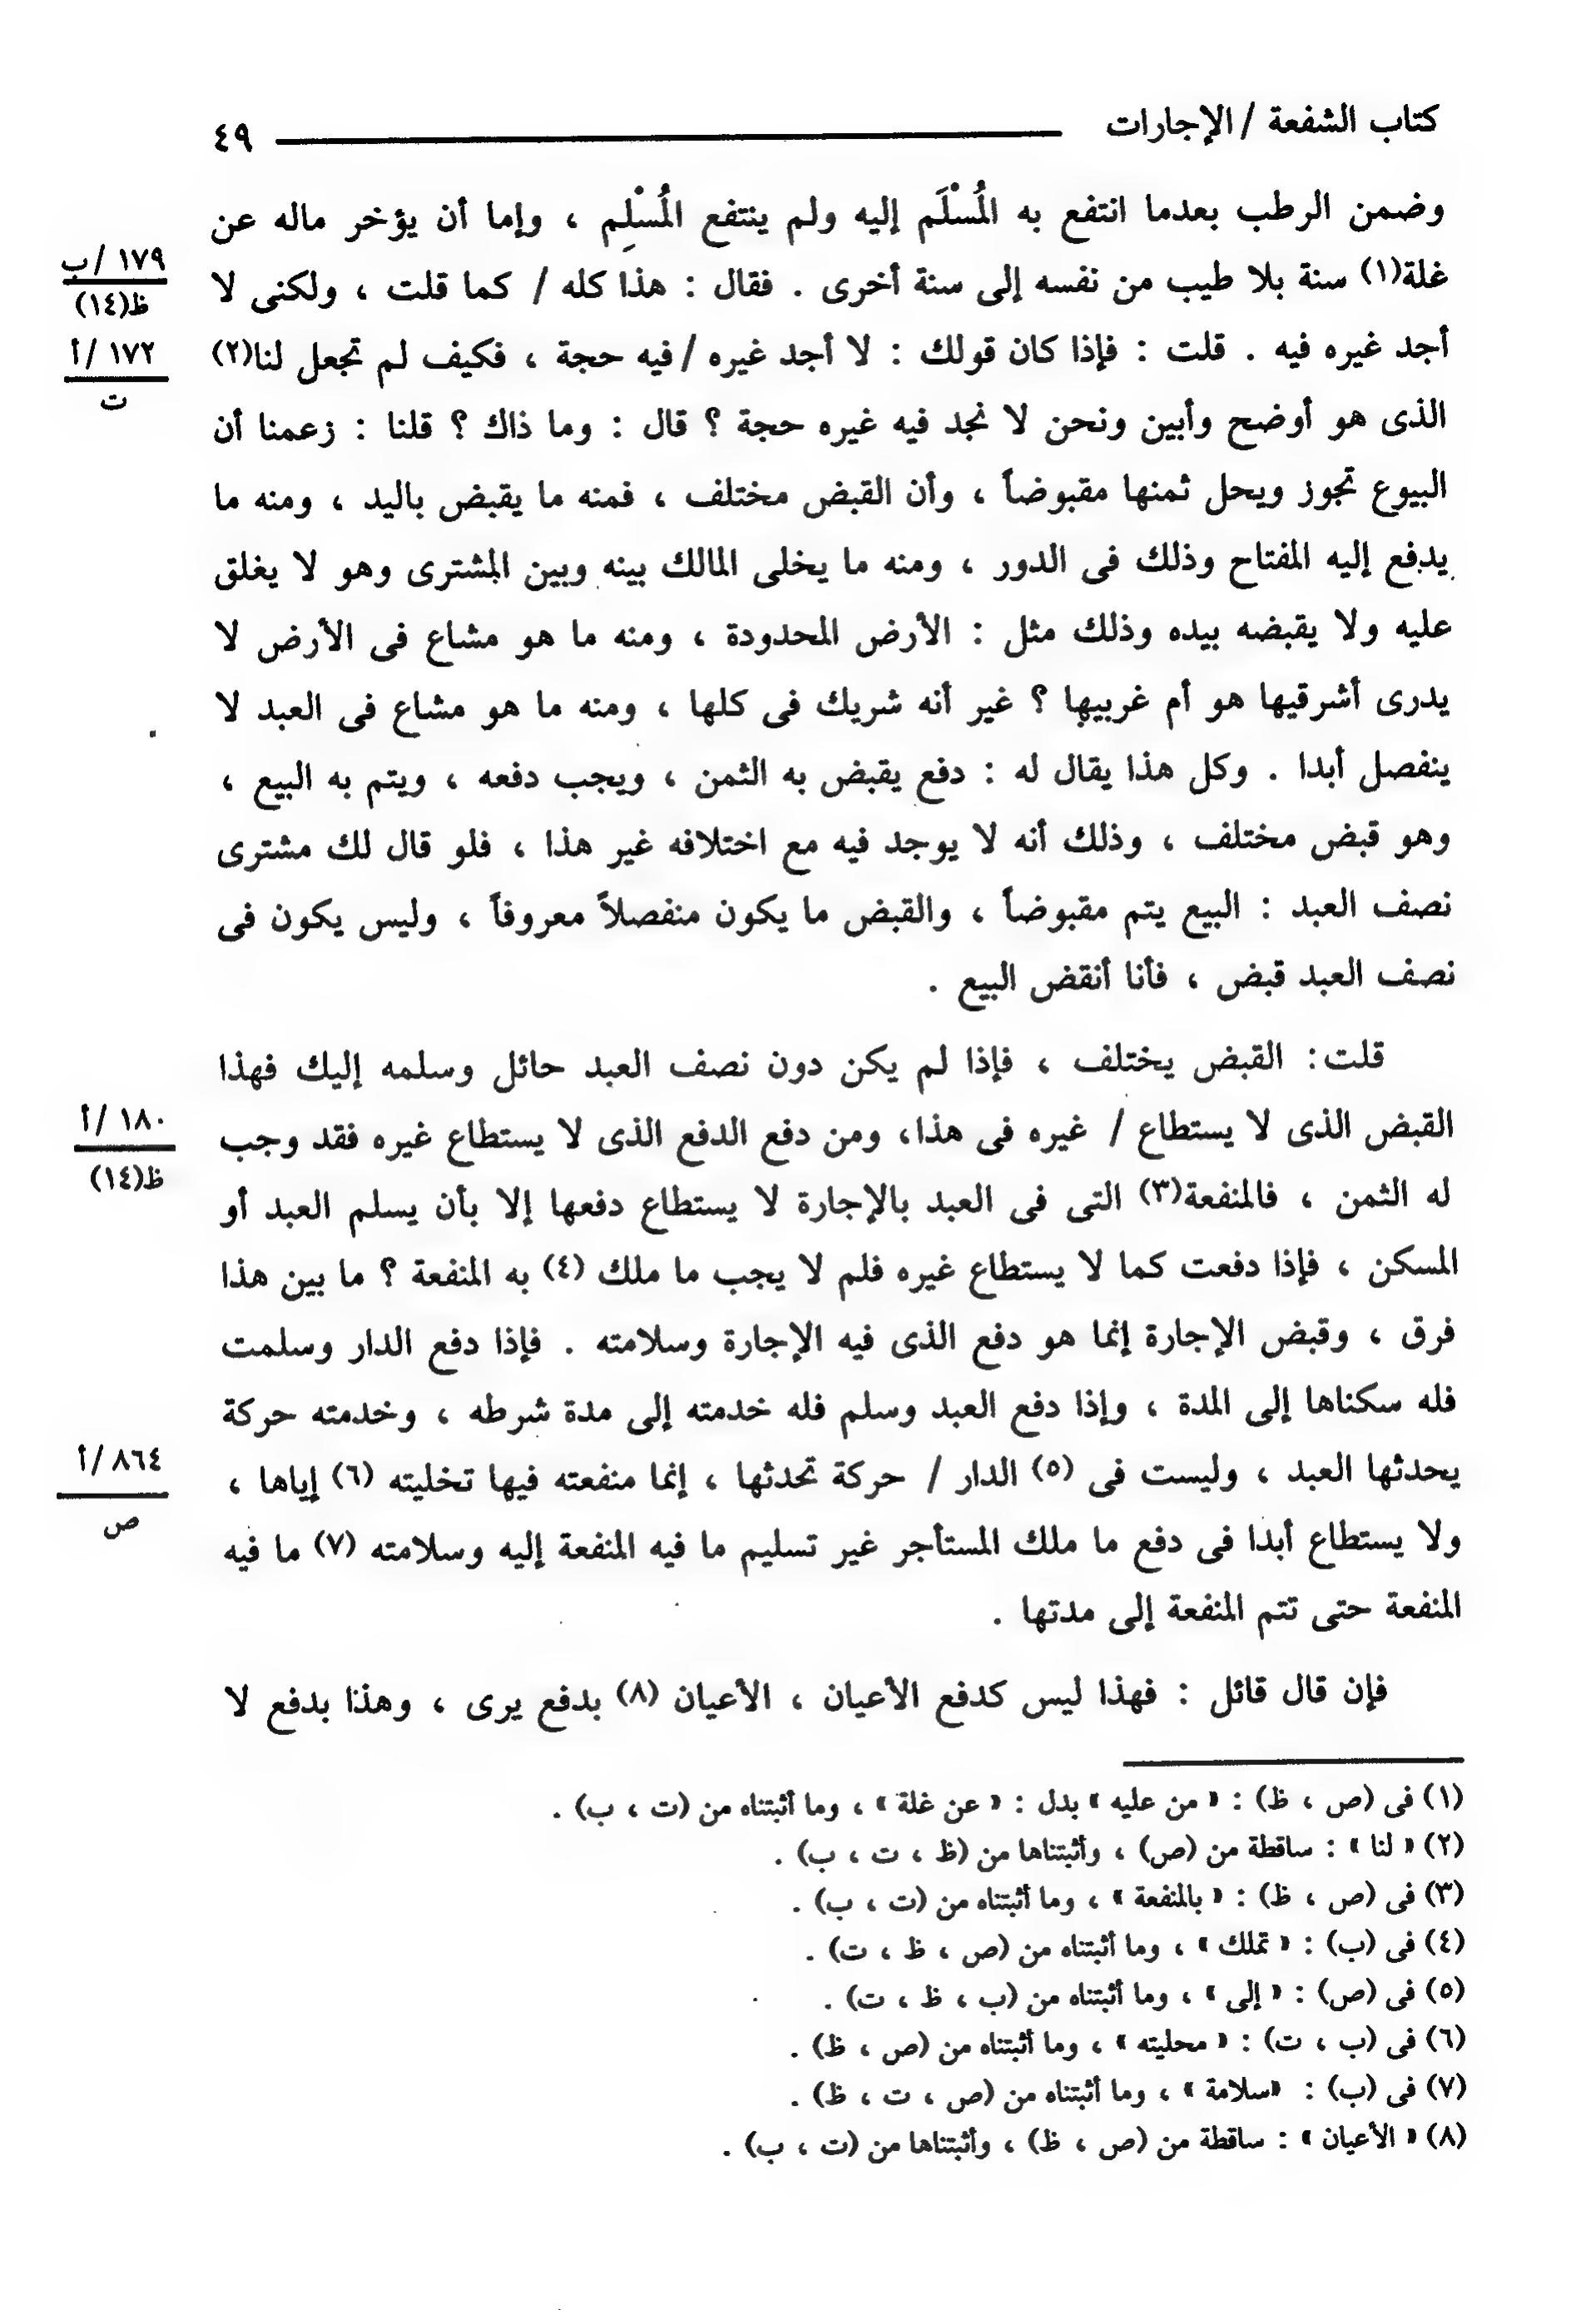 كتاب الشفعة / الإجارات ٤٩
وضمن الرطب بعدما انتفع به المُسْلَم إليه ولم ينتفع المُسْلِم ، وإما أن يؤخر ماله عن
١٧٩ /ب
ظ(١٤)
غلة(١) سنة بلا طيب من نفسه إلى سنة أخرى . فقال : هذا كله / كما قلت ، ولكنى لا
١٧٢ /أ
ت
أجد غيره فيه . قلت : فإذا كان قولك : لا أجد غيره /فيه حجة ، فكيف لم تجعل لنا(٢)
الذى هو أوضح وأبين ونحن لا نجد فيه غيره حجة ؟ قال : وما ذاك ؟ قلنا : زعمنا أن
البيوع تجوز ويحل ثمنها مقبوضاً ، وأن القبض مختلف ، فمنه ما يقبض باليد ، ومنه ما
يدفع إليه المفتاح وذلك فى الدور ، ومنه ما يخلى المالك بينه وبين المشترى وهو لا يغلق
عليه ولا يقبضه بيده وذلك مثل : الأرض المحدودة ، ومنه ما هو مشاع فى الأرض لا
يدرى أشرقيها هو أم غربيها ؟ غير أنه شريك فى كلها ، ومنه ما هو مشاع فى العبد لا
ينفصل أبدا . وكل هذا يقال له : دفع يقبض به الثمن ، ويجب دفعه ، ويتم به البيع ،
وهو قبض مختلف ، وذلك أنه لا يوجد فيه مع اختلافه غير هذا ، فلو قال لك مشترى
نصف العبد : البيع يتم مقبوضاً ، والقبض ما يكون منفصلاً معروفاً ، وليس يكون فى
نصف العبد قبض ، فأنا أنقض البيع .
قلت: القبض يختلف ، فإذا لم يكن دون نصف العبد حائل وسلمه إليك فهذا
١٨٠ /أ
ظ(١٤)
القبض الذى لا يستطاع / غيره فى هذا، ومن دفع الدفع الذى لا يستطاع غيره فقد وجب
له الثمن ، فالمنفعة(٣) التى فى العبد بالإجارة لا يستطاع دفعها إلا بأن يسلم العبد أو
المسكن ، فإذا دفعت كما لا يستطاع غيره فلم لا يجب ما ملك (٤) به المنفعة ؟ ما بين هذا
فرق ، وقبض الإجارة إنما هو دفع الذى فيه الإجارة وسلامته . فإذا دفع الدار وسلمت
فله سكناها إلى المدة ، وإذا دفع العبد وسلم فله خدمته إلى مدة شرطه ، وخدمته حركة
٨٦٤ /أ
ص
يحدثها العبد ، وليست فى (٥) الدار / حركة تحدثها ، إنما منفعته فيها تخليته (٦) إياها ،
ولا يستطاع أبدا فى دفع ما ملك المستأجر غير تسليم ما فيه المنفعة إليه وسلامته (٧) ما فيه
المنفعة حتى تتم المنفعة إلى مدتها .
فإن قال قائل : فهذا ليس كدفع الأعيان ، الأعيان (٨) بدفع يرى ، وهذا بدفع لا
(١) فى (ص ، ظ) : « من عليه » بدل : « عن غلة » ، وما أثبتناه من (ت ، ب) .
(٢) « لنا » : ساقطة من (ص) ، وأثبتناها من (ظ ، ت ، ب) .
(٣) فى (ص ، ظ) : « بالمنفعة » ، وما أثبتناه من (ت ، ب) .
(٤) فى (ب) : « تملك » ، وما أثبتناه من (ص ، ظ ، ت) .
(٥) فى (ص) : « إلى » ، وما أثبتناه من (ب ، ظ ، ت) .
(٦) فى (ب ، ت) : « محليته » ، وما أثبتناه من (ص ، ظ) .
(٧) فى (ب) : «سلامة » ، وما أثبتناه من (ص ، ت ، ظ) .
(٨) « الأعيان » : ساقطة من (ص ، ظ) ، وأثبتناها من (ت ، ب) .